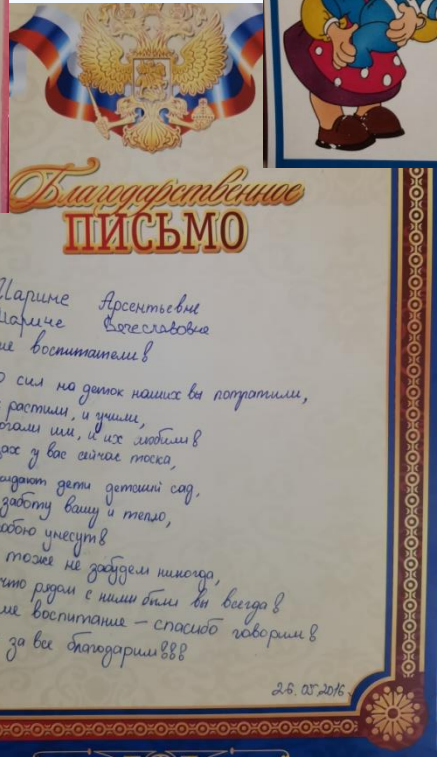 Благодарственное
ПИСЬМО
Марине Арсентьевне
Марине Вячеславовна
воспитатели!
сил на деток наших вы потратили,
растили, и учили,
им, и их любили!
у вас сейчас тоска,
дети детский сад,
заботу вашу и тепло,
собою унесут!
тоже не забудем никогда,
что рядом с ними были вы всегда!
воспитание – спасибо говорим!
за все благодарим!!!
26.05.2016